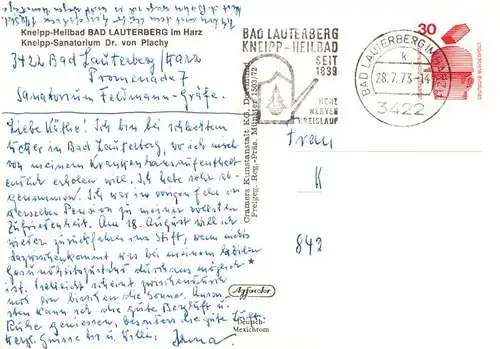 Kneipp-Heilbad BAD LAUTERBERG im Harz
Kneipp-Sanatorium Dr. von Plachy
3422 Bad Lauterberg/Harz
Promenade 7
Sanatorium Feldmann-Gräfe.
Liebe Käthe! Ich bin bei schlechtem
Wetter in Bad Lauterberg, wo ich mich
von meinem Krankenhausaufenthalt
endlich erholen will. Ich habe sehr ab-
genommen. Ich war im vorigen Jahr in
derselben Pension zu meiner vollsten
Zufriedenheit. Am 18. August will ich
wieder zurückfahren ins Stift, wenn nichts
dazwischenkommt, was bei meinem labilen
Gesundheitszustand durchaus möglich
ist. Vielleicht scheint zwischendurch
noch ein bisschen die Sonne. Anson-
sten kann ich die gute Bergluft u.
Ruhe geniessen, besonders die gute Luft.
Herzl. Grüsse
Cramers Kunstanstalt KG, Dortmund
Freigeg. Reg.-Präs. Münster 1503/72
Agfacolor
Deutsch-
Mexichrom
BAD LAUTERBERG
KNEIPP-HEILBAD
SEIT
1839
HERZ
NERVEN
KREISLAUF
BAD LAUTERBERG IM HARZ
k
28.7.73-14
3422
30
Frau
K
842